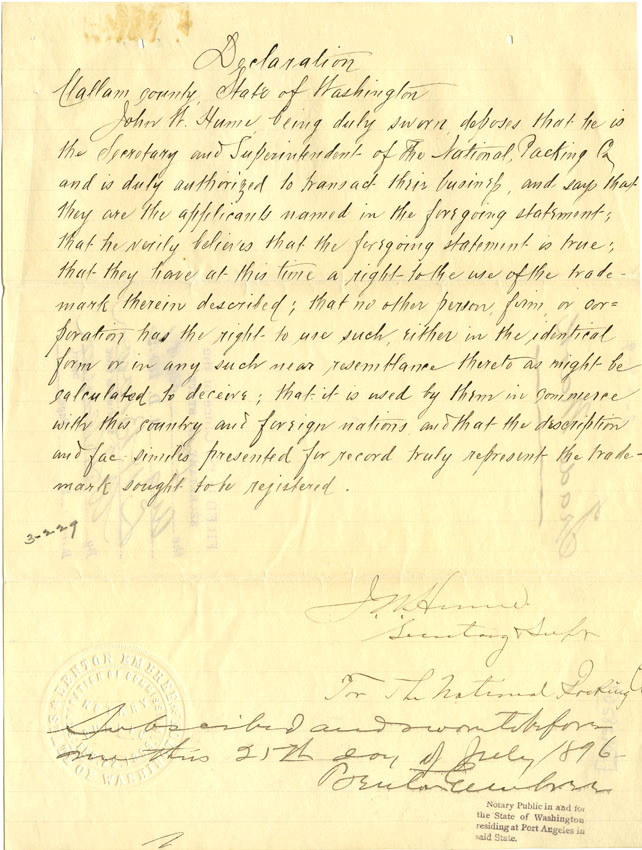 Declaration
Clallam County, State of Washington
John W. Hume, being duly sworn, deposes that he is
the Secretary and Superintendent of The National Packing Co
and is duly authorized to transact their business, and says that
they are the applicants named in the foregoing statement;
that he verily believes that the foregoing statement is true;
that they have at this time a right to the use of the trade-
mark therein described; that no other person, firm, or cor=
poration has the right to use such, either in the identical
form or in any such near resemblance thereto as might be
calculated to deceive; that it is used by them in commerce
with this country and foreign nations and that the description
and fac-similes presented for record truly represent the trade-
mark sought to be registered.
3-2-29
J.W. Hume
Secretary & Supt
For The National Packing C
Subscribed and sworn to before
me this 25th day of July 1896
Benton Embree
BENTON EMBREE
NOTARY
OF WASHIN
Notary Public in and for
the State of Washington
residing at Port Angeles in
said State.